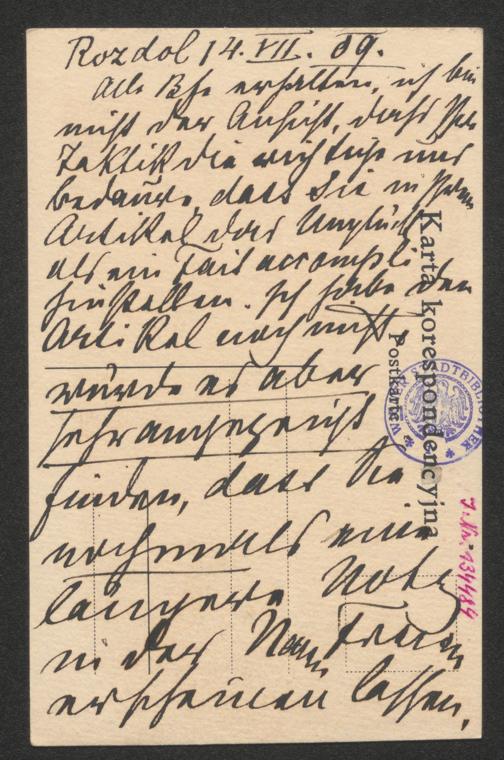 Rozdol 14. VII. 09.
Alle Bfe erhalten, ich bin
nicht der Ansicht, dass Ihre
Taktik die richtige und
bedaure, dass Sie in Ihrem
Artikel das Unglück
als ein Fait accompli
hinstellen. Ich habe den
Artikel noch nicht,
würde es aber
sehr angezeigt
finden, dass Sie
nochmals eine
längere Notiz
in der
erscheinen lassen,
Karta korespondencyjna
Postkarte
STADTBIBLIOTHEK * W *
J. Nr. 134484